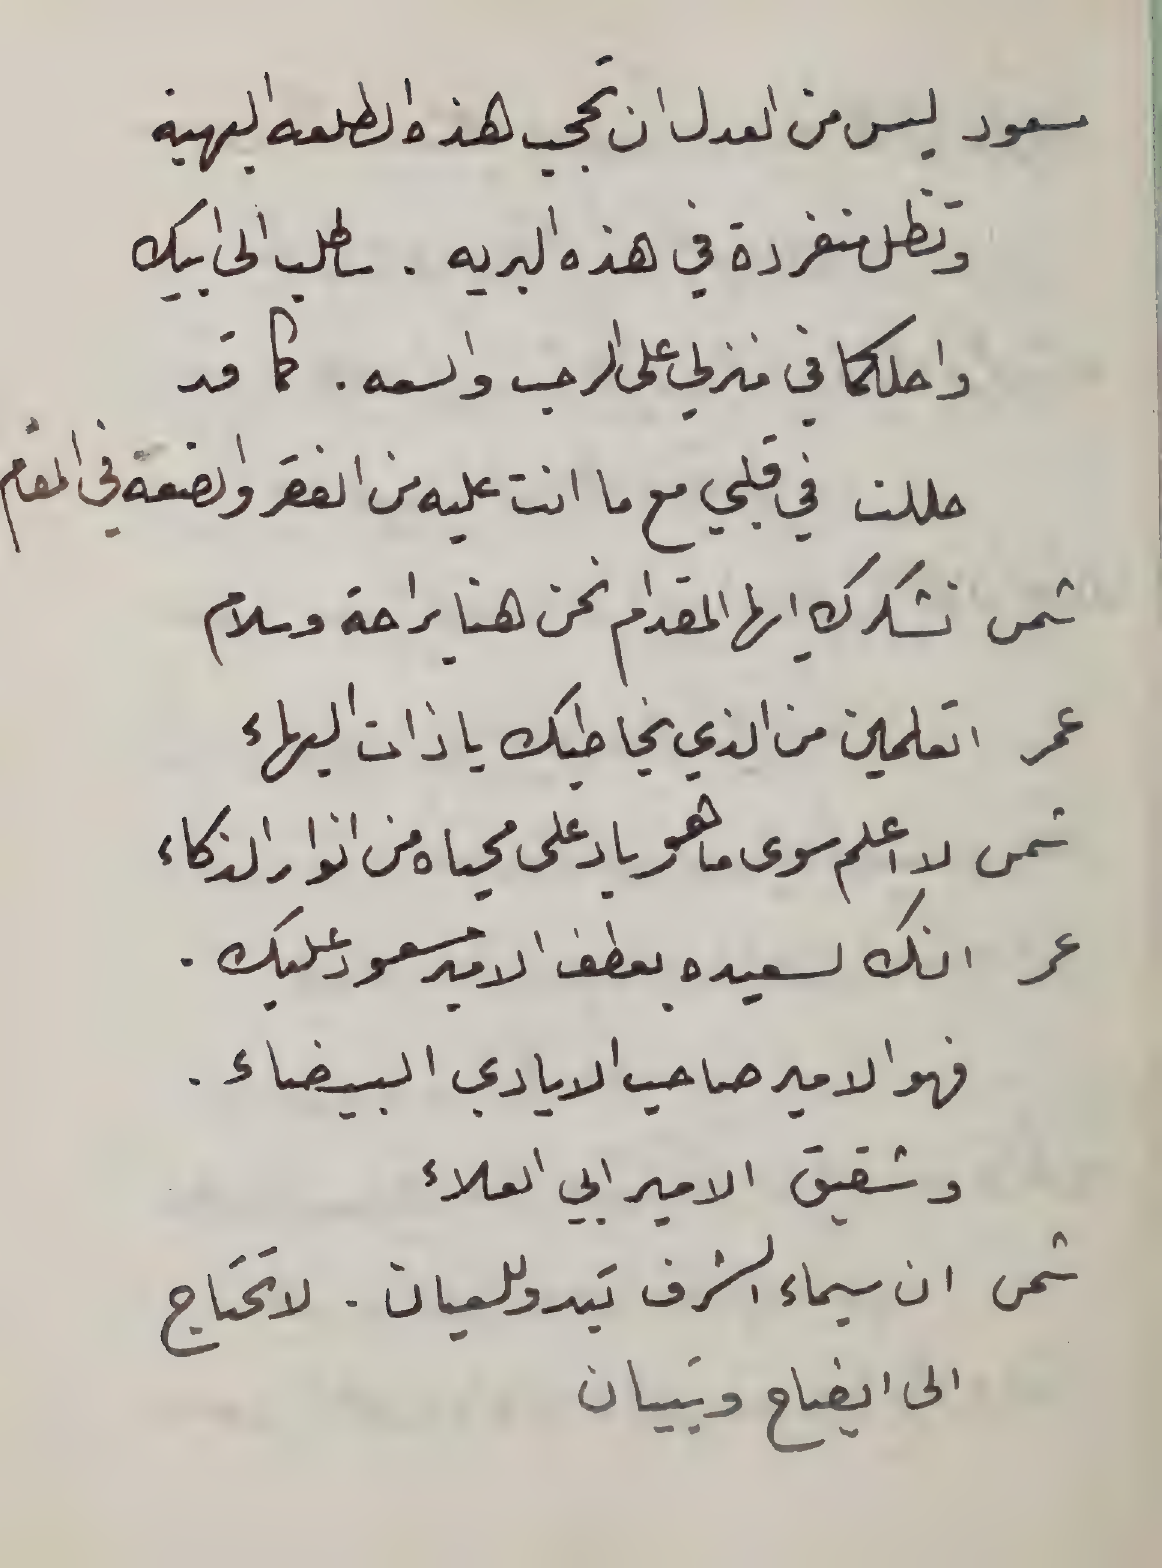 مسعود ليس من العدل ان تحجب هذه الطلعه البهية
وتظل منفردة في هذه البريه . ساطلب الى ابيك
واحلكما في منزلي على الرحب والسعه . كما قد
حللت في قلبي مع ما انت عليه من الفقر والضعة في المقام
شمس نشكرك ايها المقدام نحن هنا براحة وسلام
عمر اتعلمين من الذي يخاطبك يا ذات البهاء
شمس لا اعلم سوى ما هو باد على محياه من انوار الذكاء
عمر انك لسعيده بعطف الامير مسعود عليك .
فهو الامير صاحب الايادي البيضاء .
وشقيق الامير ابي العلاء
شمس ان سيماء الشرف تبدو للعيان . لا تحتاج
الى ايضاح وتبيان